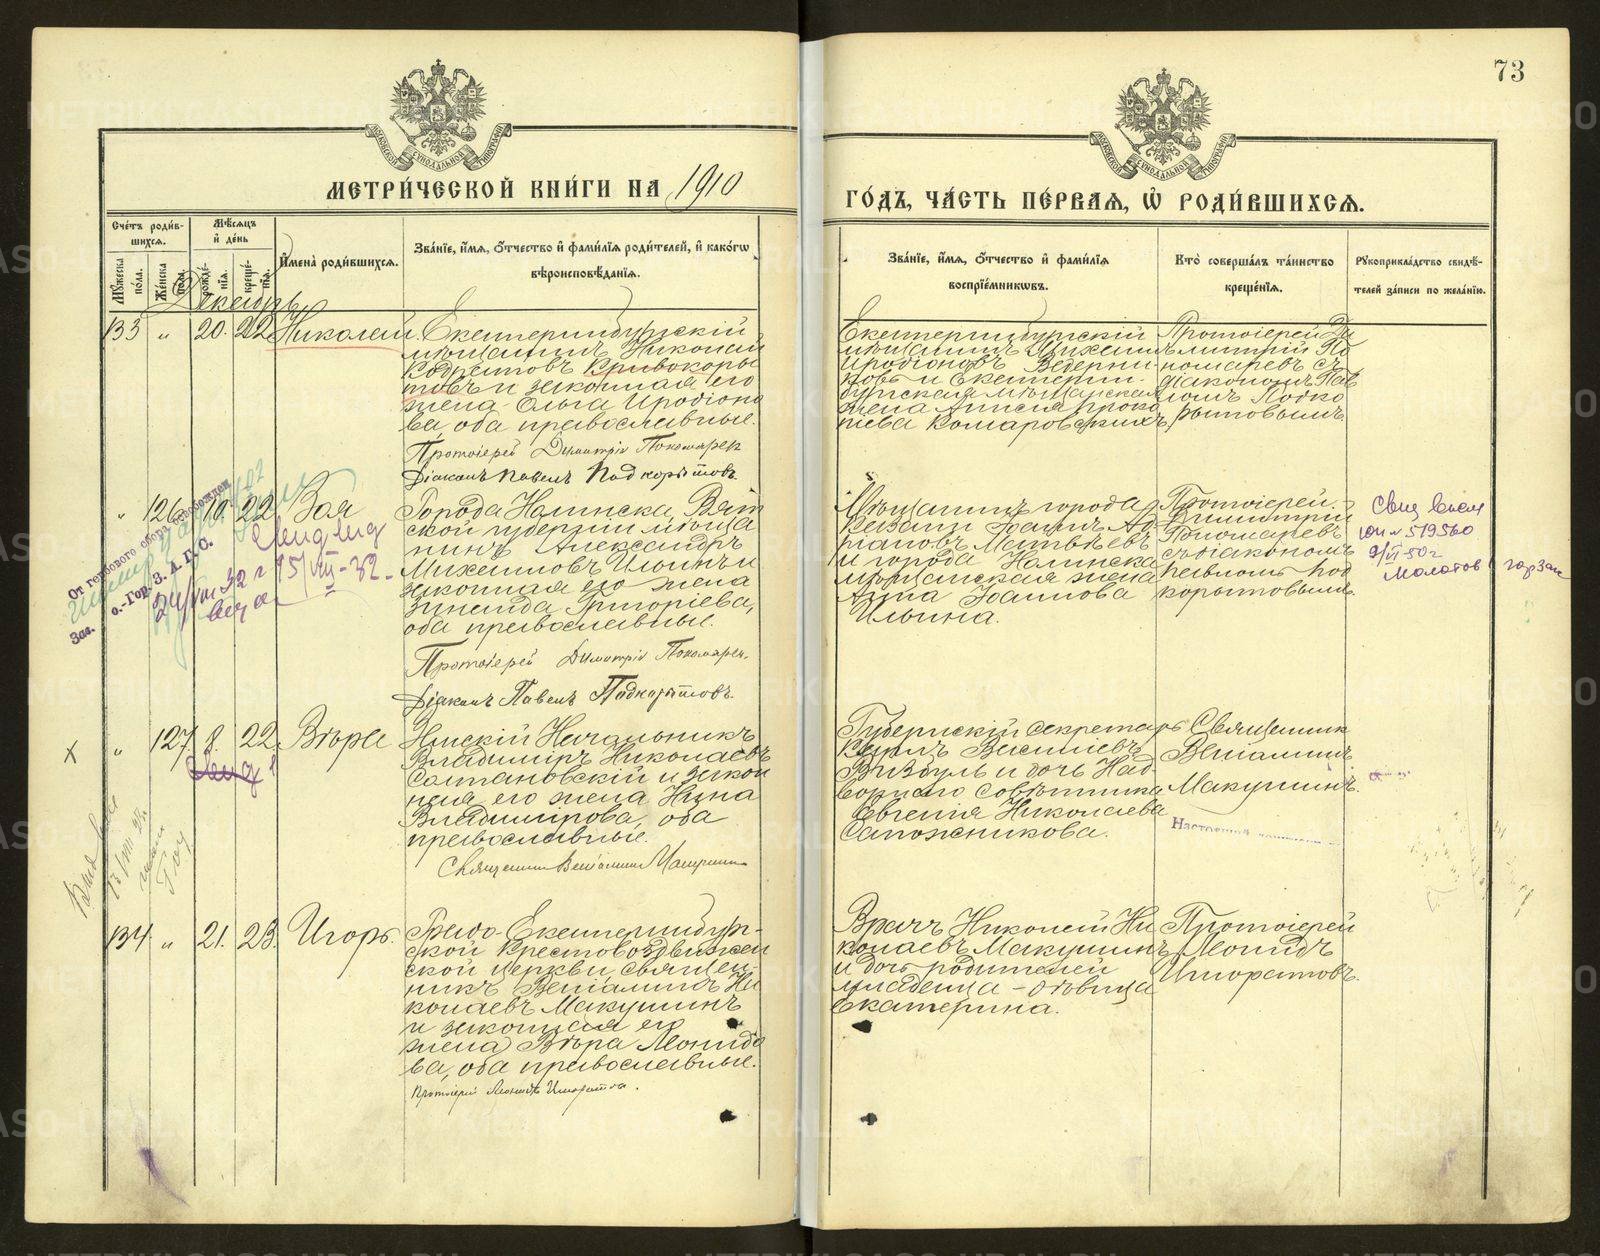 73
МЕТРИ́ЧЕСКОЙ КНИ́ГИ НА 1910
ГО́ДЪ, ЧА́СТЬ ПЕ́РВАЯ, Ѽ РОДИ́ВШИХСЯ.
Сче́тъ роди́в-
шихся.
Мꙋ́жеска по́ла.
Же́нска по́ла.
Мѣ́сяцъ
и҆ де́нь
рожде́-
нїѧ.
креще́-
нїѧ.
И҆мена̀ роди́вшихся.
Зва́нїе, и҆́мя, ѻ҆́тчество и҆ фами́лїѧ роди́телей, и҆ како́гѡ
вѣроисповѣ́данїѧ.
Зва́нїе, и҆́мя, ѻ҆́тчество и҆ фами́лїѧ
воспрїе́мникѡвъ.
Кто̀ соверша́лъ та́инство
креще́нїѧ.
Рꙋкоприкла́дство свидѣ́-
телей за́писи по жела́нїю.
Декабрь
133 „ 20. 22 Николай.
Екатеринбургскій
мѣщанинъ Николай
Кодратовъ Кривокоры
товъ и законная его
жена Ольга Иродіоно
ва, оба православные.
Протоіерей Димитрій Пономарев
Діаконъ Павелъ Подкорытовъ.
Екатеринбургскій
мѣщанинъ Михаилъ
Иродіоновъ Ведерни
ковъ и Екатерин-
бургская мѣщанская
жена Анисія Проко
піева Комаровскихъ
Протоіерей Ди
митрій По
номаревъ съ
діакономъ Пав
ломъ Подко
рытовымъ.
„ 126 19. 22 Зоя
Города Нолинска, Вят
ской губерніи мѣща
нинъ Александръ
Михаиловъ Ильинъ и
законная его жена
Зинаида Григоріева,
оба православные.
Протоіерей Димитрій Пономарев.
Діаконъ Павелъ Подкорытовъ.
Мѣщанинъ города
Казани Іоаннъ Ад
ріановъ Матвѣевъ
и города Нолинска
мѣщанская жена
Анна Іоаннова
Ильина.
Протоіерей
Димитрій
Пономаревъ
съ діакономъ
Павломъ Под
корытовымъ.
От гербового сбора освобожден
о.-Гор. З. А. Г. С.
Зав.
15/VIII-32.
№ 519560
9/VI 50 г
Молотов горзаг
„ 127 8. 22. Вѣра
Начальникъ
Владиміръ Николаевъ
Солтановскій и закон
ная его жена Нина
Владимірова, оба
православные.
Священникъ Веніаминъ Макушинъ
Губернскій секретарь
Карлъ Васильевъ
и дочь Над
ворнаго совѣтника
Евгенія Николаева
Сапожникова.
Священникъ
Веніаминъ
Макушинъ.
134 „ 21. 23. Игорь.
Градо-Екатеринбур-
ской Крестовоздвижен
ской церкви, священ-
никъ Веніаминъ Ни
колаевъ Макушинъ
и законная его
жена Вѣра Леонидо
ва, оба православные.
Протоіерей Леонидъ Игноратовъ.
Врачъ Николай Ни
колаевъ Макушинъ
и дочь родителей
младенца - отовица
Екатерина.
Протоіерей
Леонидъ
Игноратовъ.